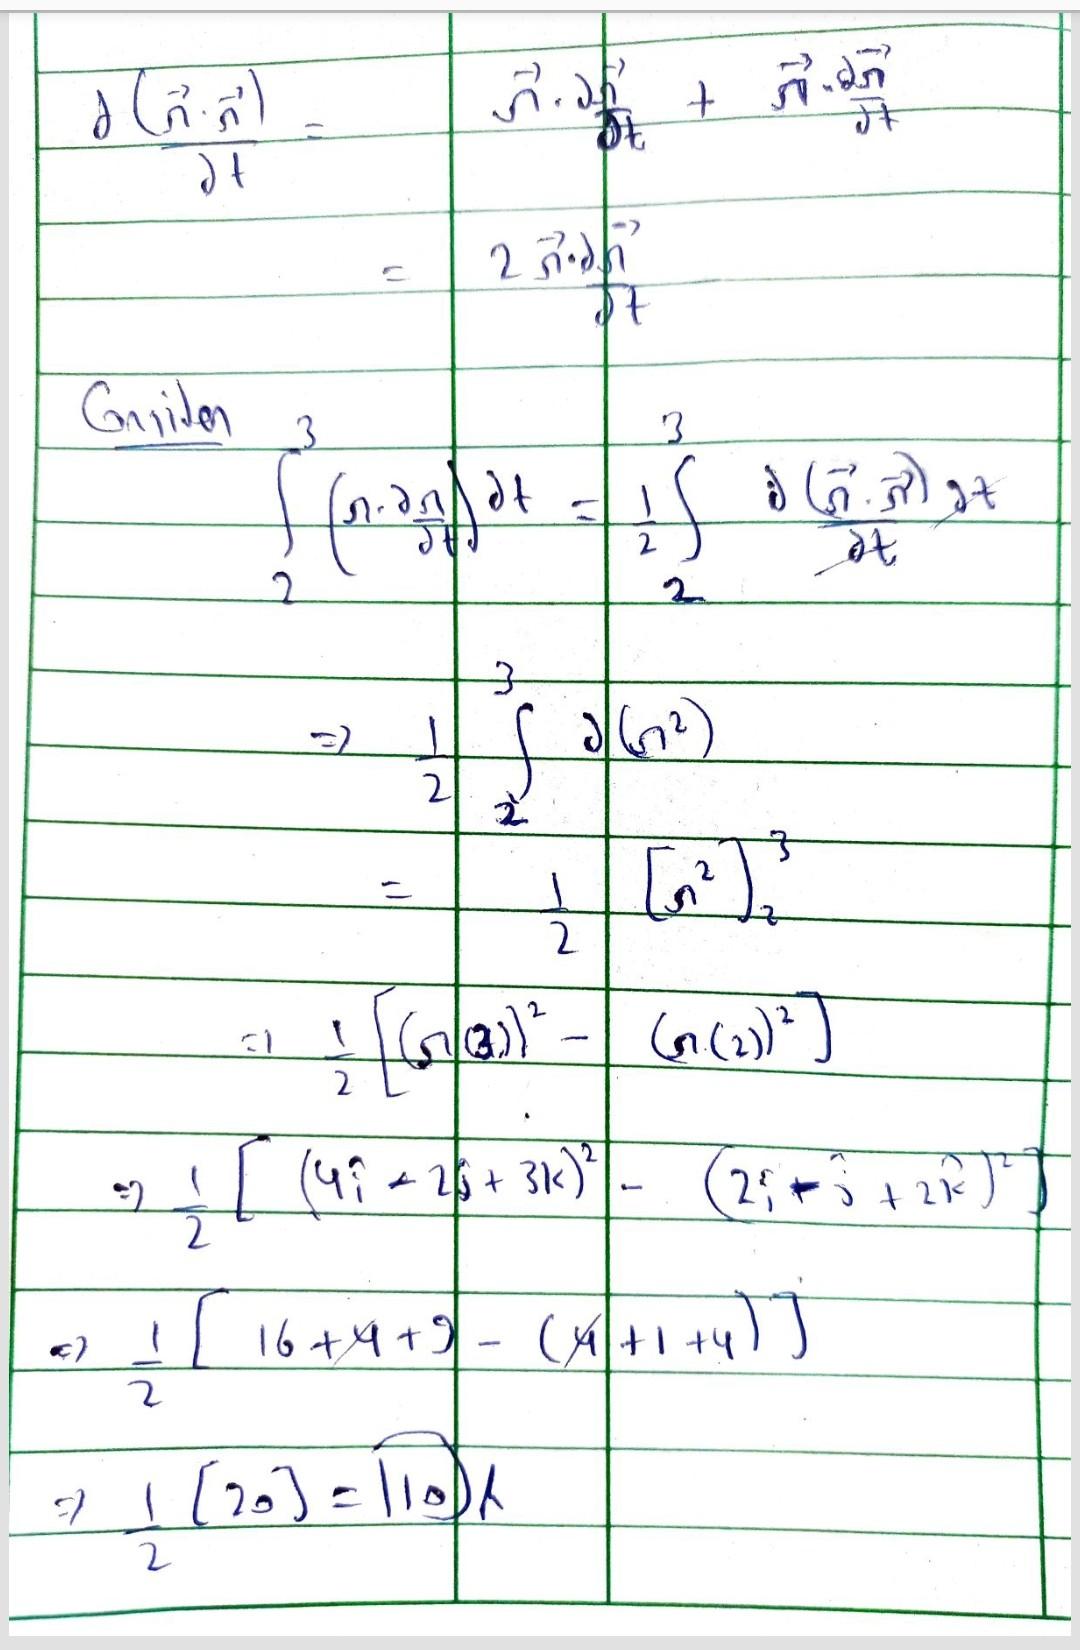 d(r⃗·r⃗)/dt = r⃗·dr⃗/dt + r⃗·dr⃗/dt
= 2 r⃗·dr⃗/dt
Consider
∫₂³ (r·dr/dt) dt = 1/2 ∫₂³ d(r⃗·r⃗)/dt dt
=> 1/2 ∫₂³ d(r²)
= 1/2 [r²]₂³
=> 1/2 [(r(3))² - (r(2))²]
=> 1/2 [(4î - 2ĵ + 3k)² - (2î + ĵ + 2k̂)²]
=> 1/2 [16 + 4 + 9 - (4 + 1 + 4)]
=> 1/2 [20] = 10